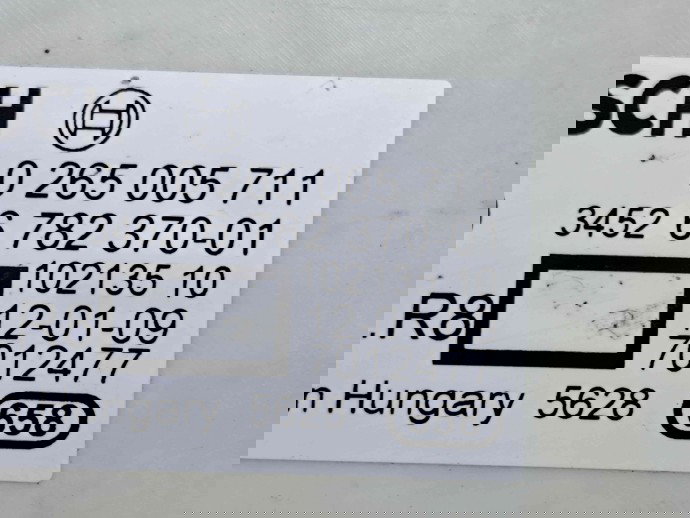 SCH
0 265 005 711
3452 6 782 370-01
102135 10
12-01-09
.R8
7012477
n Hungary 5628
658